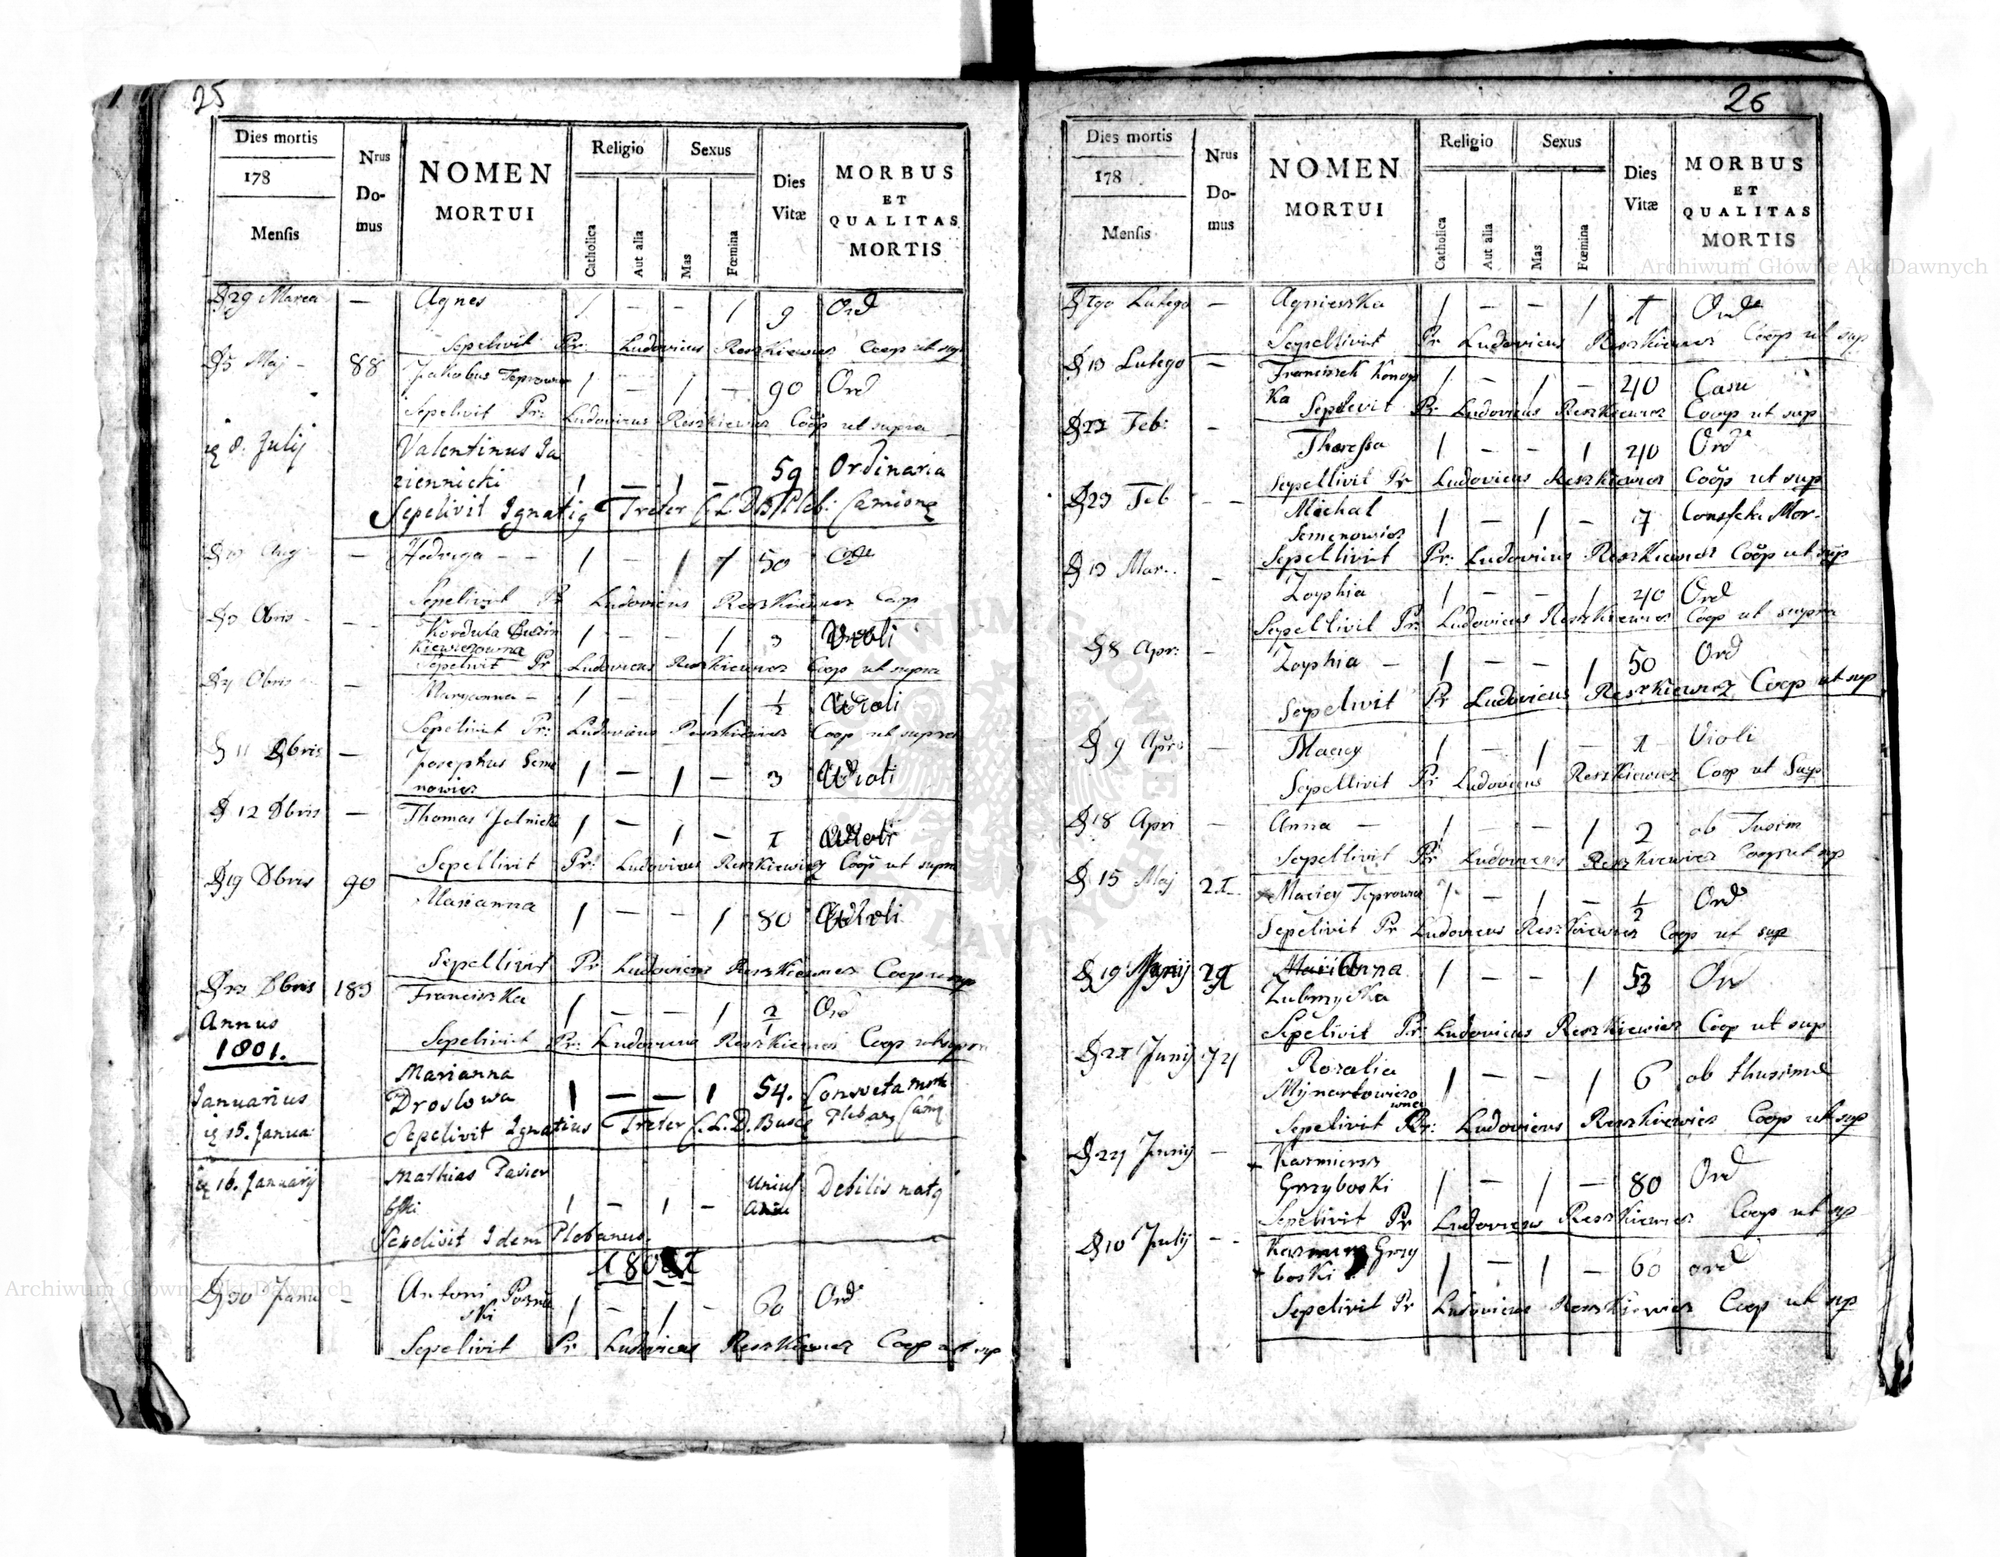 25
Dies mortis
178
Mensis
Nrus
Do-
mus
NOMEN
MORTUI
Religio
Catholica
Aut alia
Sexus
Mas
Fœmina
Dies
Vitæ
MORBUS
ET
QUALITAS
MORTIS
29 Marca — Agnes 1 — — 1 9 Ord
Sepelivit Pr: Ludovicus Reszkiewicz Coop ut sup
5 Maj — 88 Jakobus Teprowicz 1 — 1 — 90 Ord
Sepelivit Pr: Ludovicus Reszkiewicz Coop ut supra
8. Julij Valentinus Ja
ziennicki 1 — 1 — 59 Ordinaria
Sepelivit Ignatig Treter C.L.D.B. Pleb: Camionę
Aug — Hedviga — — 1 — 1 1 50
Sepelivit Pr Ludovicus Reszkiewicz Coop
Obris — Kordula
kiewiczowna 1 — — 1 3 Violi
Sepelivit Pr Ludovicus Reszkiewicz Coop ut supra
Obris — Maryanna — 1 — — 1 ½ Violi
Sepelivit Pr: Ludovicus Reszkiewicz Coop ut supra
11 Obris — Josephus Seme
nowicz 1 — 1 — 3 Violi
12 Dbris — Thomas Jelnicki 1 — 1 — 1
Sepellivit Pr: Ludovicus Reszkiewicz Coop ut supra
19 Dbris 90 Marianna 1 — — 1 80
Sepellivit Pr Ludovicus Reszkiewicz Coop ut sup
Dbris 183 Franciszka 1 — — 1 Ord
Sepelivit Pr: Ludovicus Reszkiewicz Coop ut supra
Annus
1801.
Januarius
15. Janua Marianna
Droslowa 1 — — 1 54. Consveta morte
Sepelivit Ignatius Treter C.L.D. Buscę Plebanę Camę
16. Januarij Mathias Pavier
1 — 1 — unius Debilis natę
Sepelivit Idem Plebanus.
30 Janu — Antoni Pozna
ski 1 — 1 — 60 Ord
Sepelivit Pr Ludovicus Reszkiewicz Coop ut sup
26
Dies mortis
178
Mensis
Nrus
Do-
mus
NOMEN
MORTUI
Religio
Catholica
Aut alia
Sexus
Mas
Fœmina
Dies
Vitæ
MORBUS
ET
QUALITAS
MORTIS
Lutego — Agnieszka 1 — — 1 1 Ord
Sepellivit Pr Ludovicus Reszkiewicz Coop ut sup
13 Lutego — Franciszek Konop
ka 1 — 1 — 40 Casu
Sepelevit Pr Ludovicus Reszkiewicz Coop ut sup
Feb: — Theressa 1 — — 1 40 Ord
Sepellivit Pr Ludovicus Reszkiewicz Coop ut sup
23 Feb — — Michal
Semenowicz 1 — 1 — 7 Mor.
Sepellivit Pr: Ludovicus Reszkiewicz Coop ut sup
13 Mar. — Zophia 1 — — 1 40 Ord
Sepellivit Pr: Ludovicus Reszkiewicz Coop ut supra
8 Apr: — Zophia — 1 — — 1 50 Ord
Sepelivit Pr Ludovicus Reszkiewicz Coop ut sup
9 Apri — Maciey 1 — 1 — 1 Violi
Sepellivit Pr Ludovicus Reszkiewicz Coop ut Sup
18 Apri — Anna — 1 — — 1 2 ab Tusim
Sepellivit Pr Ludovicus Reszkiewicz Coop ut sup
15 Maj 21 Maciey Teprowicz 1 — 1 — ½ Ord
Sepelivit Pr Ludovicus Reszkiewicz Coop ut sup
19 Junij Marianna
Zubrzycka 1 — — 1 53 Ord
Sepelivit Pr: Ludovicus Reszkiewicz Coop ut sup
21 Junij 74 Rozalia
Mynartowiczo
wna 1 — — 1 6 ab thusime
Sepelivit Pr: Ludovicus Reszkiewicz Coop ut sup
24 Junij — Kazmierz
Grzyboski 1 — 1 — 80 Ord
Sepelivit Pr Ludovicus Reszkiewicz Coop ut sup
10 Julij — — Kazmierz Grzy
boski 1 — 1 — 60 ord
Sepelivit Pr Ludovicus Reszkiewicz Coop ut sup
Archiwum Główne Akt Dawnych
Archiwum Główne Akt Dawnych